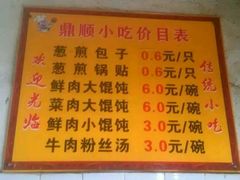 鼎顺小吃价目表
欢迎光临
葱煎包子 0.6元/只
葱煎锅贴 0.6元/只
鲜肉大馄饨 6.0元/碗
菜肉大馄饨 6.0元/碗
鲜肉小馄饨 3.0元/碗
牛肉粉丝汤 3.0元/碗
传统小吃